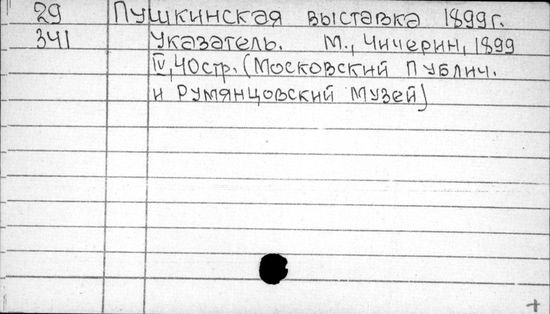 29 Пушкинская выставка 1899г.
341 Указатель. М., Чичерин, 1899
IV, 40стр. (Московский Публич.
и Румянцовский Музей)
+